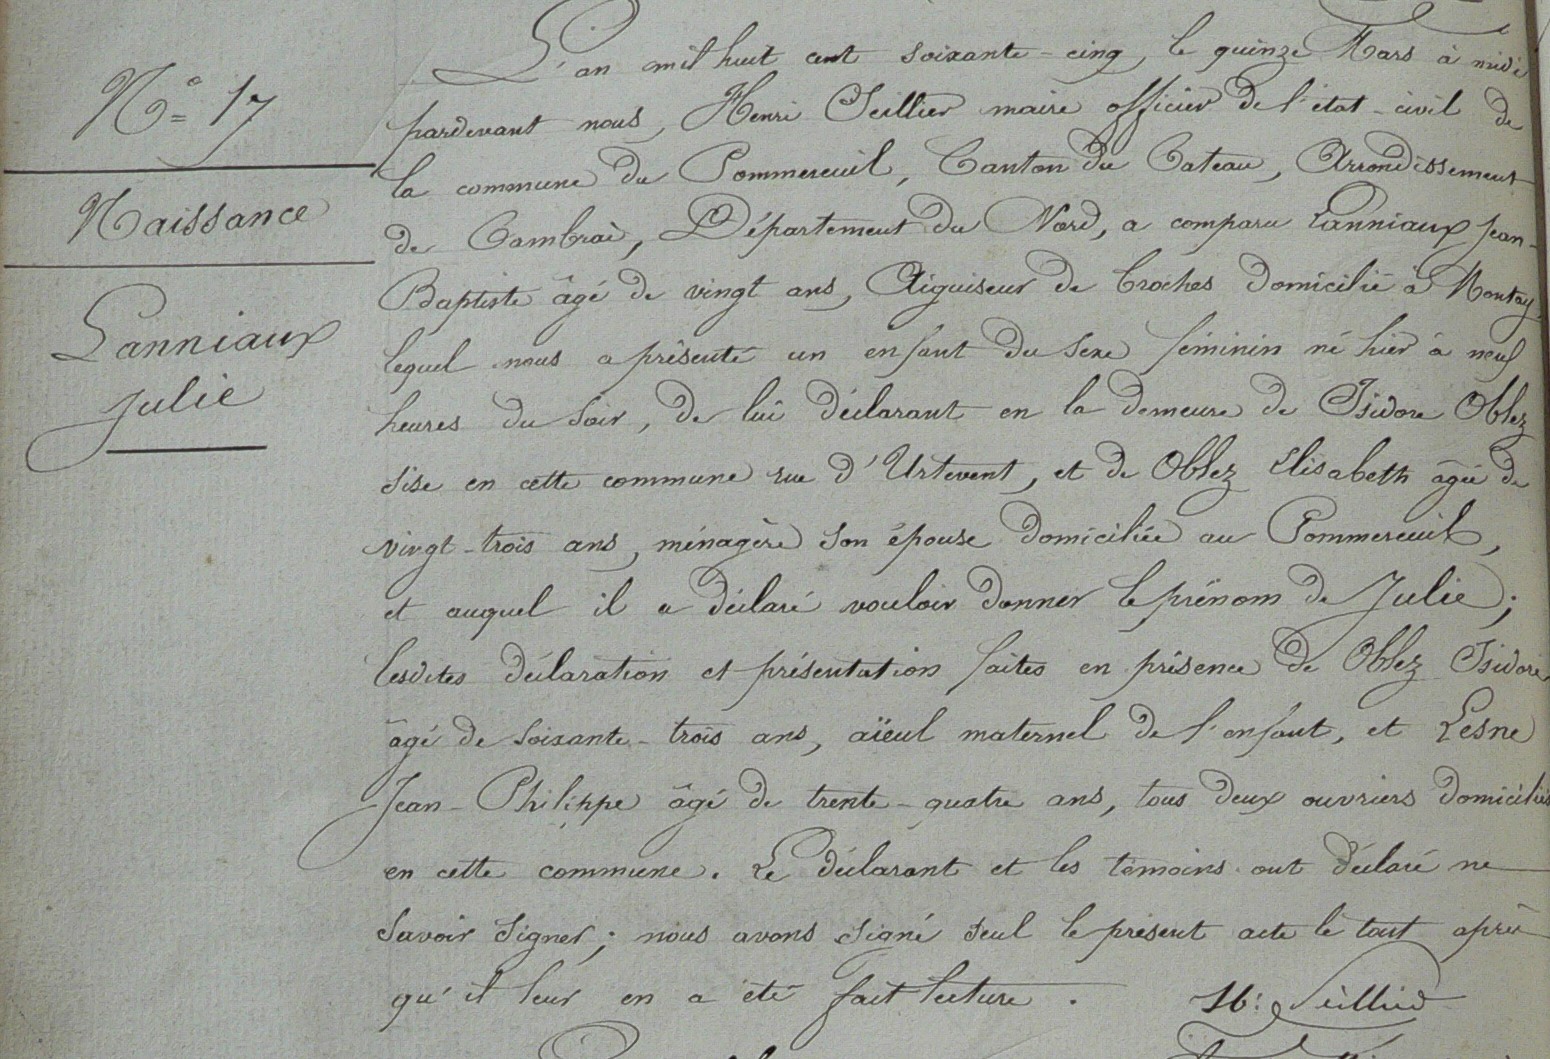 N° 17
Naissance
Lanniaux
Julie
L'an mil huit cent soixante-cinq, le quinze Mars à midi
pardevant nous, Henri Seillier maire officier de l'état-civil de
la commune du Pommereuil, Canton du Cateau, Arrondissement
de Cambrai, Département du Nord, a comparu Lanniaux Jean-
Baptiste âgé de vingt ans, Aiguiseur de broches domicilié à Montay,
lequel nous a présenté un enfant du sexe féminin né hier à neuf
heures du soir, de lui déclarant en la demeure de Isidore Oblez
sise en cette commune rue d'Urtevent, et de Oblez Elisabeth âgée de
vingt-trois ans, ménagère son épouse domiciliée au Pommereuil,
et auquel il a déclaré vouloir donner le prénom de Julie;
lesdites déclaration et présentation faites en présence de Oblez Isidore,
âgé de soixante-trois ans, aïeul maternel de l'enfant, et Lesne
Jean-Philippe âgé de trente-quatre ans, tous deux ouvriers domiciliés
en cette commune. Le déclarant et les témoins ont déclaré ne
savoir signer; nous avons signé seul le présent acte le tout après
qu'il leur en a été fait lecture.
H: Seillier